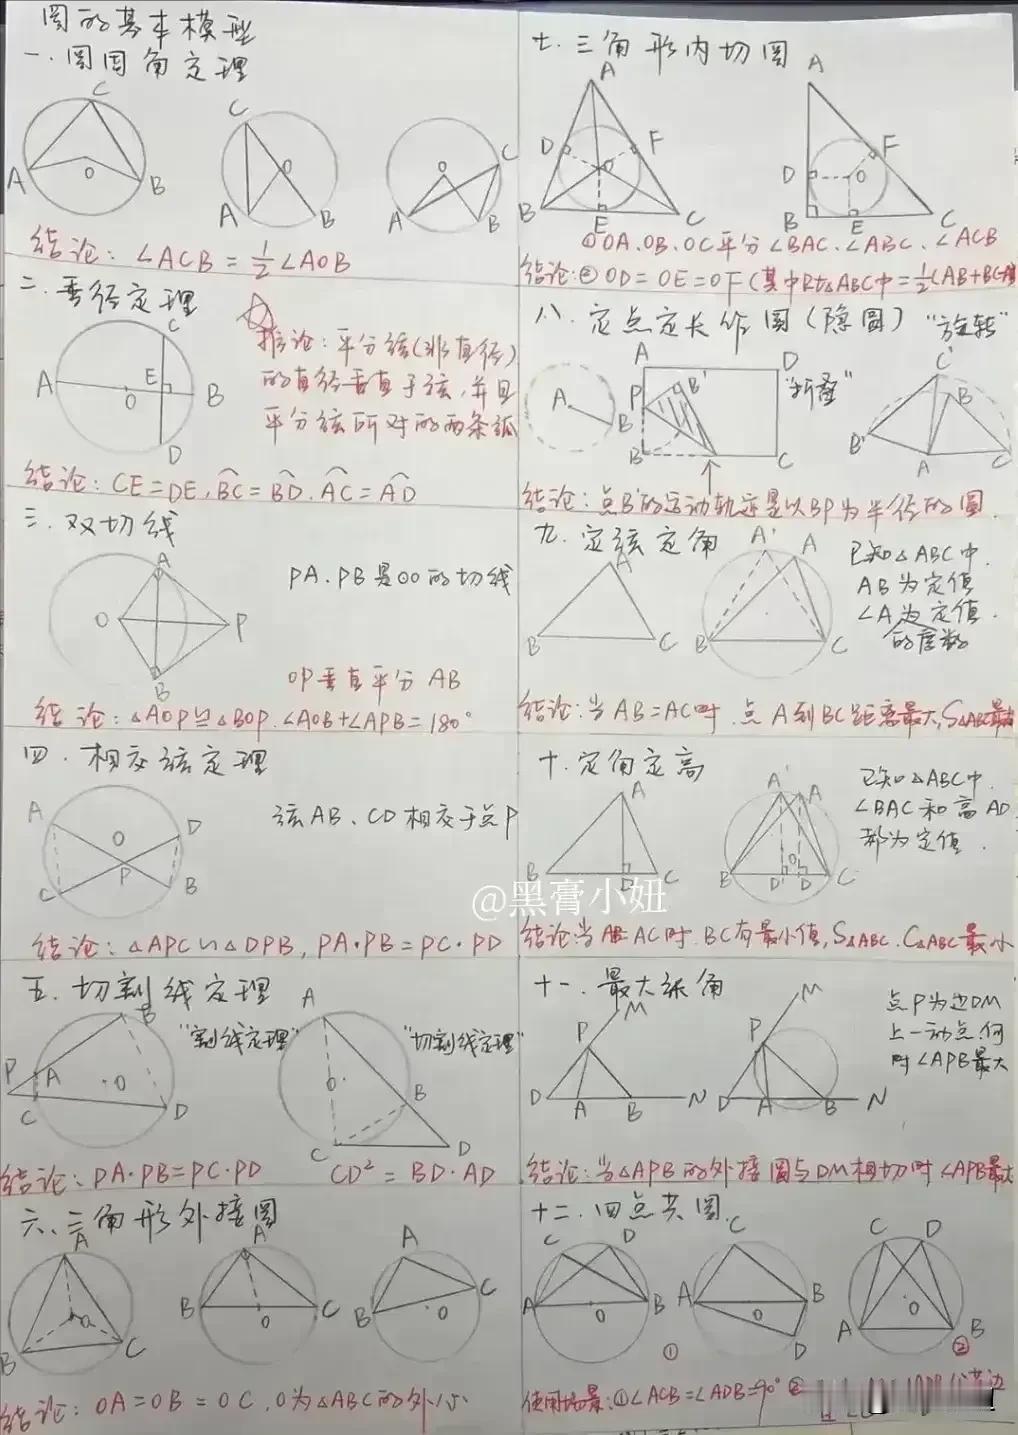 圆的基本模型
一.圆周角定理
C
A
O
B
C
O
A
B
O
C
A
B
结论: ∠ACB = 1/2 ∠AOB
二.垂径定理
C
A
E
O
B
D
推论: 平分弦(非直径)
的直径垂直于弦,并且
平分弦所对的两条弧
结论: CE=DE, BC=BD, AC=AD
三.双切线
A
O
P
B
PA.PB是⊙O的切线
OP垂直平分AB
结论: △AOP≌△BOP.∠AOB+∠APB=180°
四.相交弦定理
A
O
D
P
C
B
弦AB、CD相交于点P
结论: △APC∽△DPB, PA·PB=PC·PD
五.切割线定理
B
"割线定理"
P
A
O
C
D
A
"切割线定理"
O
B
C
D
结论: PA·PB=PC·PD
CD²=BD·AD
六、三角形外接圆
A
O
B
C
A
B
O
C
A
C
B
O
结论: OA=OB=OC,O为△ABC的外心
七.三角形内切圆
A
D
F
O
B
E
C
A
F
D
O
B
E
C
①OA.OB.OC平分∠BAC.∠ABC.∠ACB
结论:②OD=OE=OF(其中Rt△ABC中=1/2(AB+BC-
八.定点定长作圆(隐圆) "旋转"
A
B
A
D
P
B'
"折叠"
B
C
C'
B
B'
A
C
结论: 点B'的运动轨迹是以BP为半径的圆.
九.定弦定角
A
B
C
A'
A
B
C
已知△ABC中.
AB为定值
∠A为定值.
的度数
结论:当AB=AC时.点A到BC距离最大,S△ABC最大
十.定角定高
A
B
D
C
A'
A
O
B
D'
D
C
已知△ABC中.
∠BAC和高AD
都为定值.
@黑膏小妞
结论:当AB=AC时.BC有最小值,S△ABC.C△ABC最小
十一.最大张角
M
P
D
A
B
N
M
P
D
A
B
N
点P为边DM
上一动点.何
时∠APB最大
结论:当△APB的外接圆与DM相切时∠APB最大
十二.四点共圆.
C
D
A
O
B
C
A
O
B
D
①
C
D
O
A
B
②
使用场景:①∠ACB=∠ADB=90° ②